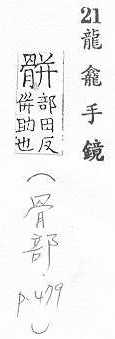 21 龍龕手鏡
骿
部田反
併助也
(骨部. p.479)